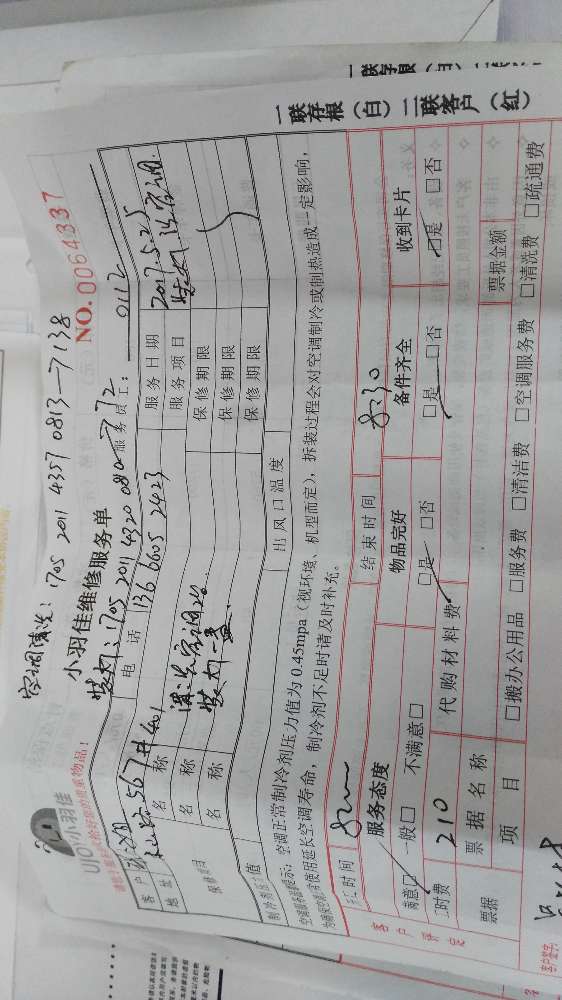 空调清洗：1705 2011 4357 0813-7138
小羽佳维修服务单
NO.0064337
UIO小羽佳
装灯：1705 2011 4320 080-7
服务员工：
9112
客户
电话
136 6605 2423
服务日期
2017.5.25
地址
567弄401
服务项目
名称
清洗空调2台
保修期限
名称
装灯一盏
保修期限
名称
保修期限
出风口温度
空调正常制冷剂压力值为0.45mpa（视环境、机型而定），拆装过程会对空调制冷或制热造成一定影响，
使用延长空调寿命，制冷剂不足时请及时补充。
时间
结束时间
8:30
服务态度
物品完好
备件齐全
收到卡片
满意□ 一般□ 不满意□
□是 □否
□是 □否
□是 □否
工时费
210
代购材料费
票据名称
票据金额
票据
项目
□搬办公用品 □服务费 □清洁费 □空调服务费 □清洗费 □疏通费
客户评定
客户签字:
一联存根（白）二联客户（红）